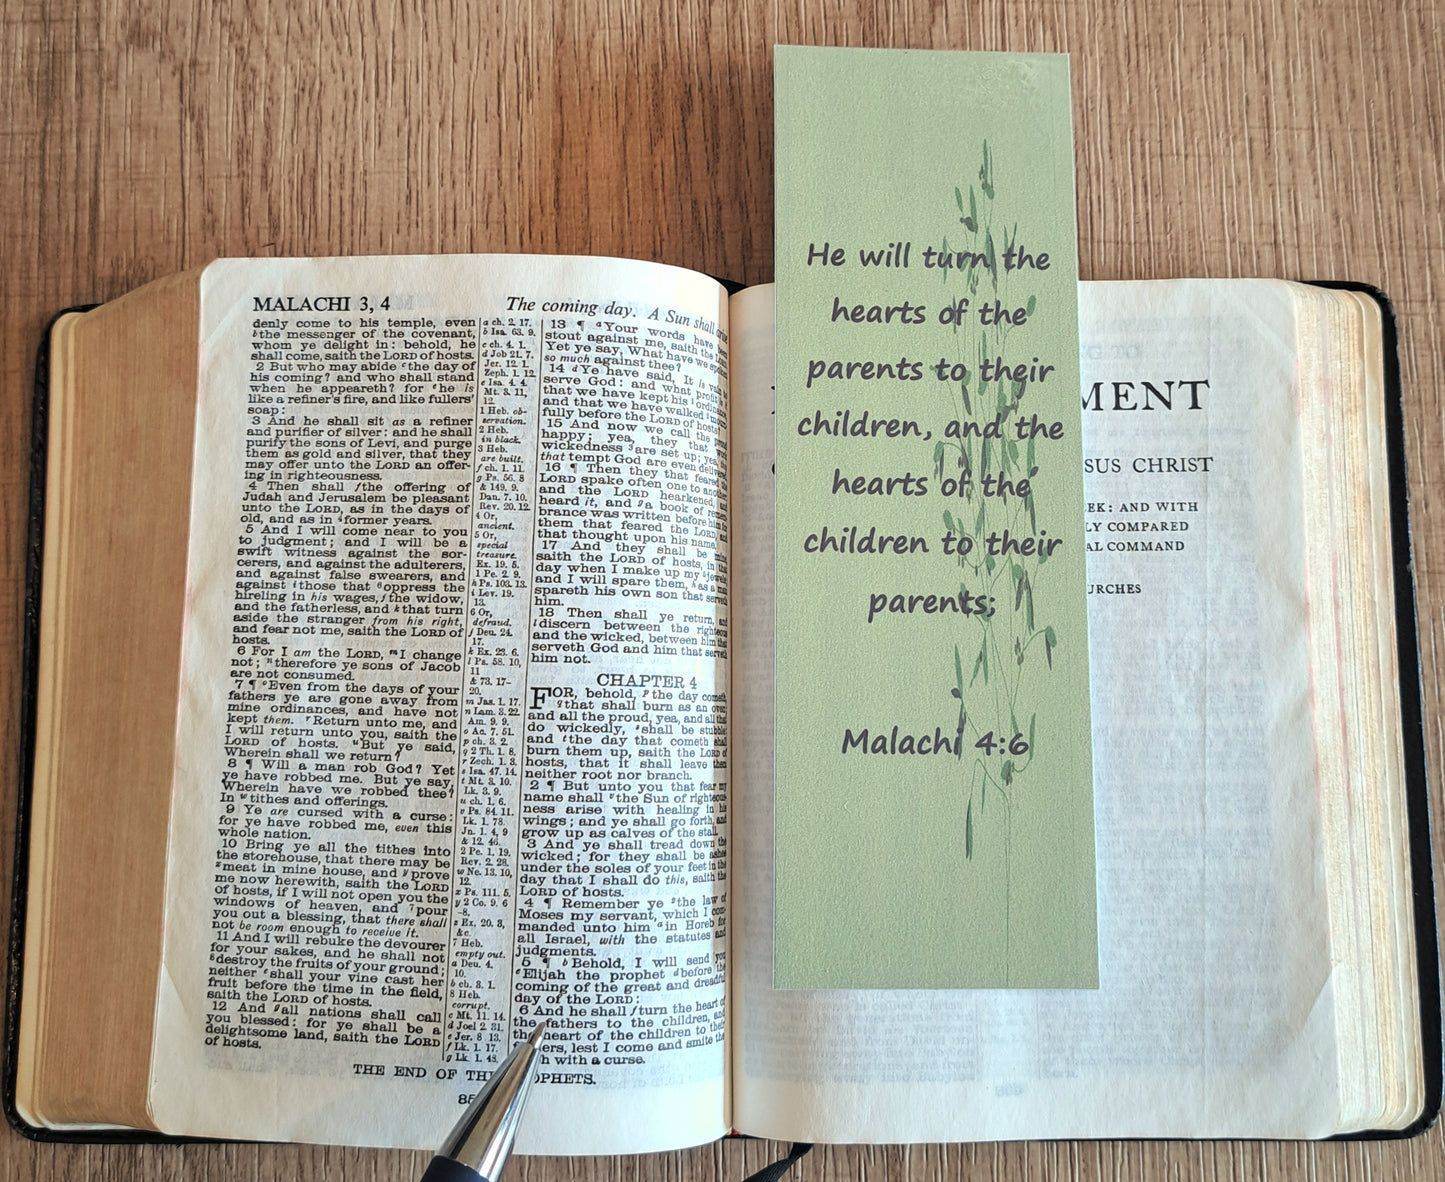 MALACHI 3, 4
The coming day. A Sun shall arise
denly come to his temple, even
b the messenger of the covenant,
whom ye delight in: behold, he
shall come, saith the LORD of hosts.
2 But who may abide c the day of
his coming? and who shall stand
when he appeareth? for e he is
like a refiner's fire, and like fullers'
soap:
3 And he shall sit as a refiner
and purifier of silver: and he shall
purify the sons of Levi, and purge
them as gold and silver, that they
may offer unto the LORD an offer-
ing in righteousness.
4 Then shall f the offering of
Judah and Jerusalem be pleasant
unto the LORD, as in the days of
old, and as in 4 former years.
5 And I will come near to you
to judgment; and I will be a
swift witness against the sor-
cerers, and against the adulterers,
and against false swearers, and
against i those that 6 oppress the
hireling in his wages, j the widow,
and the fatherless, and k that turn
aside the stranger from his right,
and fear not me, saith the LORD of
hosts.
6 For I am the LORD, m I change
not; n therefore ye sons of Jacob
are not consumed.
7 ¶ o Even from the days of your
fathers ye are gone away from
mine ordinances, and have not
kept them. r Return unto me, and
I will return unto you, saith the
LORD of hosts. u But ye said,
Wherein shall we return?
8 ¶ Will a man rob God? Yet
ye have robbed me. But ye say,
Wherein have we robbed thee?
In w tithes and offerings.
9 Ye are cursed with a curse:
for ye have robbed me, even this
whole nation.
10 Bring ye all the tithes into
the storehouse, that there may be
z meat in mine house, and y prove
me now herewith, saith the LORD
of hosts, if I will not open you the
windows of heaven, and 7 pour
you out a blessing, that there shall
not be room enough to receive it.
11 And I will rebuke the devourer
for your sakes, and he shall not
8 destroy the fruits of your ground;
neither c shall your vine cast her
fruit before the time in the field,
saith the LORD of hosts.
12 And g all nations shall call
you blessed: for ye shall be a
delightsome land, saith the LORD
of hosts.
a ch. 2. 17.
b Isa. 63. 9.
c ch. 4. 1.
d Job 21. 7.
Jer. 12. 1.
Zeph. 1. 12.
e Isa. 4. 4.
Mt. 3. 11,
12.
1 Heb. ob-
servation.
2 Heb.
in black.
3 Heb.
are built.
f ch. 1. 11.
g Ps. 56. 8
& 149. 9.
Dan. 7. 10.
Rev. 20. 12.
4 Or,
ancient.
5 Or,
special
treasure.
Ex. 19. 5.
1 Pe. 2. 9.
h Ps. 103. 13.
i Lev. 19.
13.
6 Or,
defraud.
j Deu. 24.
17.
k Ex. 23. 6.
l Ps. 58. 10,
11
& 73. 17-
20.
m Jas. 1. 17.
n Lam. 3. 22.
Am. 9. 9.
o Ac. 7. 51.
p ch. 3. 2.
q 2 Th. 1. 8.
r Zech. 1. 3.
s Isa. 47. 14.
t Mt. 3. 10.
Lk. 3. 9.
u ch. 1. 6.
v Ps. 84. 11.
Lk. 1. 78.
Jn. 1. 4, 9
& 12. 46.
2 Pe. 1. 19.
Rev. 2. 28.
w Ne. 13. 10,
12.
x Ps. 111. 5.
y 2 Co. 9. 6
-8.
z Ex. 20. 3,
&c.
7 Heb.
empty out.
a Deu. 4.
10.
b ch. 3. 1.
8 Heb.
corrupt.
c Mt. 11. 14.
d Joel 2. 31.
e Jer. 8 13.
f Lk. 1. 17.
g Lk. 1. 48.
13 ¶ a Your words have been
stout against me, saith the LORD.
Yet ye say, What have we spoken
so much against thee?
14 d Ye have said, It is vain to
serve God: and what profit is it
that we have kept his 1 ordinance,
and that we have walked 2 mourn-
fully before the LORD of hosts?
15 And now we call the proud
happy; yea, they that work
wickedness 3 are set up; yea, they
that tempt God are even delivered.
16 ¶ Then they that feared the
LORD spake often one to another:
and the LORD hearkened, and
heard it, and g a book of remem-
brance was written before him for
them that feared the LORD, and
that thought upon his name.
17 And they shall be mine,
saith the LORD of hosts, in that
day when I make up my 5 jewels;
and I will spare them, h as a man
spareth his own son that serveth
him.
18 Then shall ye return, and
l discern between the righteous
and the wicked, between him that
serveth God and him that serveth
him not.
CHAPTER 4
FOR, behold, p the day cometh,
q that shall burn as an oven;
and all the proud, yea, and all that
do wickedly, s shall be stubble:
and t the day that cometh shall
burn them up, saith the LORD of
hosts, that it shall leave them
neither root nor branch.
2 ¶ But unto you that fear my
name shall v the Sun of righteous-
ness arise with healing in his
wings; and ye shall go forth, and
grow up as calves of the stall.
3 And ye shall tread down the
wicked; for they shall be ashes
under the soles of your feet in the
day that I shall do this, saith the
LORD of hosts.
4 ¶ Remember ye z the law of
Moses my servant, which I com-
manded unto him a in Horeb for
all Israel, with the statutes and
judgments.
5 ¶ b Behold, I will send you
c Elijah the prophet d before the
coming of the great and dreadful
day of the LORD:
6 And he shall f turn the heart of
the fathers to the children, and
the heart of the children to their
ers, lest I come and smite the
h with a curse.
THE END OF TH OPHETS.
85
He will turn the
hearts of the
parents to their
children, and the
hearts of the
children to their
parents;
Malachi 4:6
MENT
SUS CHRIST
EEK: AND WITH
LY COMPARED
AL COMMAND
URCHES